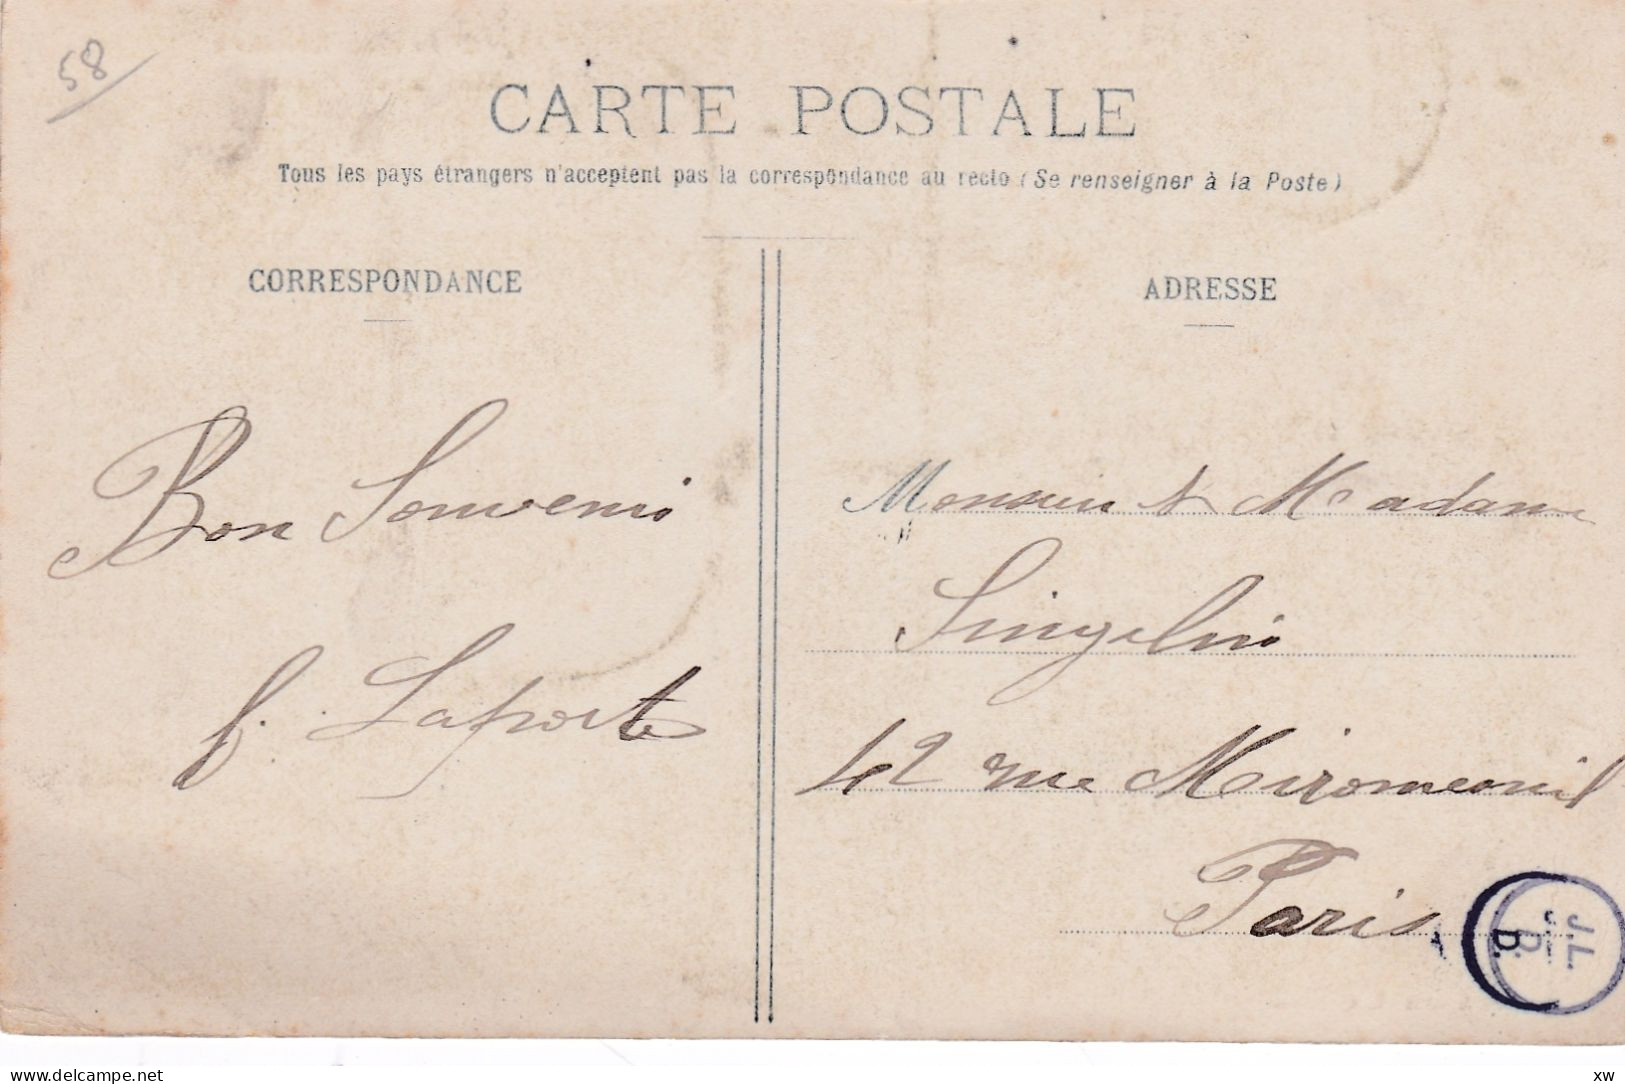 58
CARTE POSTALE
Tous les pays étrangers n'acceptent pas la correspondance au recto (Se renseigner à la Poste)
CORRESPONDANCE
ADRESSE
Bon Souvenir
f. Laporte
Monsieur & Madame
42 rue Miromesnil
Paris
J.L.
D.
www.delcampe.net
xw